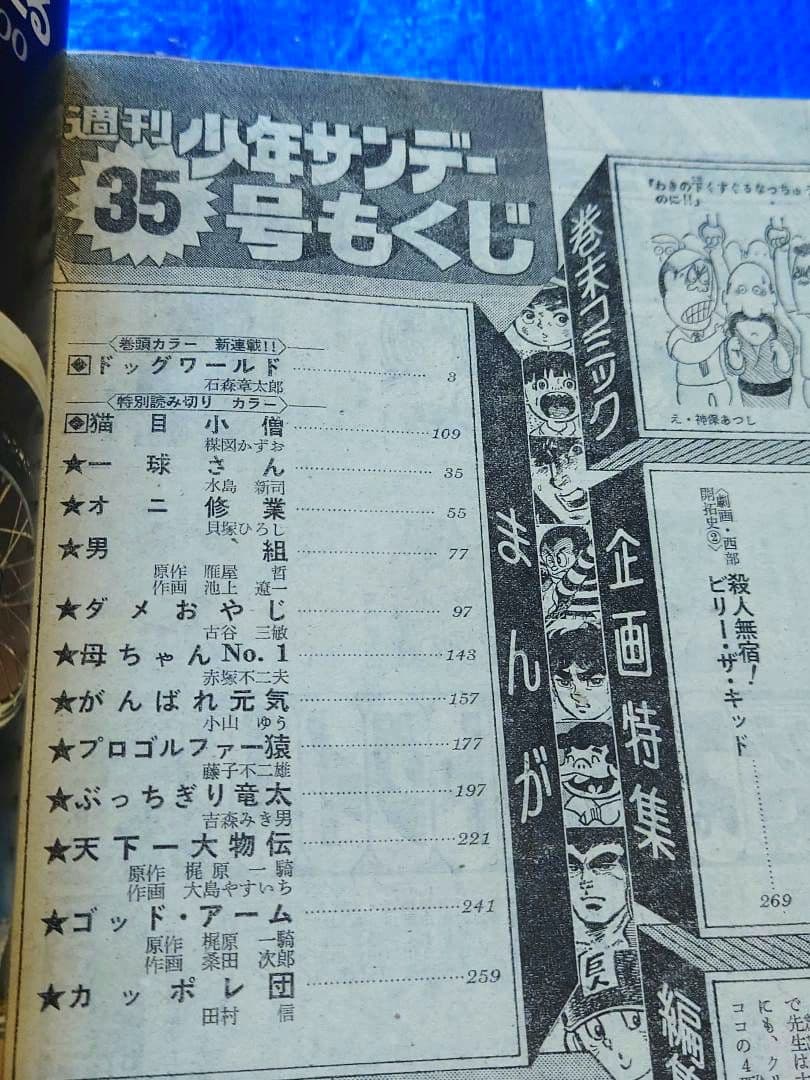 週刊少年サンデー
35号もくじ
まんが
〈巻頭カラー　新連載!!〉
ドッグワールド……3
石森章太郎
〈特別読み切り　カラー〉
猫目小僧……109
楳図かずお
★一球さん……35
水島　新司
★オニ修業……55
貝塚ひろし
★男　組……77
原作　雁屋　哲
作画　池上　遼一
★ダメおやじ……97
古谷　三敏
★母ちゃんNo.1……143
赤塚不二夫
★がんばれ元気……157
小山　ゆう
★プロゴルファー猿……177
藤子不二雄
★ぶっちぎり竜太……197
吉森みき男
★天下一大物伝……221
原作　梶原　一騎
作画　大島やすいち
★ゴッド・アーム……241
原作　梶原　一騎
作画　桑田　次郎
★カッポレ団……259
田村　信
巨人
巻末コミック
「わきの下くすぐるなっちゅう
のに!!」
え・神保あつし
企画特集
〈劇画・西部
開拓史②〉
殺人無宿！
ビリー・ザ・キッド……269
編
で先生は
にも、ク
ココの4